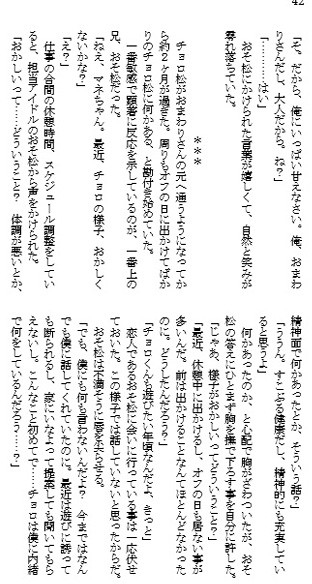 42
「そ、だから、俺にいっぱい甘えなさい。俺、おまわ
りさんだし、大人だから。ね?」
「………はい」
おそ松にかけられた言葉が嬉しくて、自然と笑みが
零れ落ちていた。
***
チョロ松がおまわりさんの元へ通うようになってか
ら約2ヶ月が過ぎた。周りもオフの日に出かけてばか
りのチョロ松に何かある、と勘付き始めていた。
一番敏感で顕著に反応を示しているのが、一番上の
兄、おそ松だった。
「ねえ、マネちゃん。最近、チョロの様子、おかしく
ないかな?」
「え?」
仕事の合間の休憩時間、スケジュール調整をしてい
ると、担当アイドルのおそ松から声をかけられた。
「おかしいって……どういうこと? 体調が悪いとか、
精神面で何かあったとか、そういう話?」
「ううん。すこぶる健康だし、精神的にも充実してい
ると思うよ」
何かあったのか、と心配で胸がざわついたが、おそ
松の答えにひとまず胸を撫で下ろす事を自分に許した。
「じゃあ、様子がおかしいってどういうこと?」
「最近、休憩中に出かけるし、オフの日も居ない事が
多いんだ。前は出かけることなんてほとんどなかった
のに。どうしたんだろう?」
「チョロくんも遊びたい年頃なんだよ、きっと」
恋人であるおそ松に会いに行っている事は一応伏せ
ておいた。この様子では話していないと思ったからだ。
おそ松は不満そうに唇を尖らせる。
「でも、僕にも何も言わないんだよ? 今まではなん
でも僕に話してくれていたのに。最近は遊びに誘って
も断られるし、家にいなよって提案しても聞いてもら
えないし。こんなこと初めてで……チョロは僕に内緒
で何をしているんだろう……?」